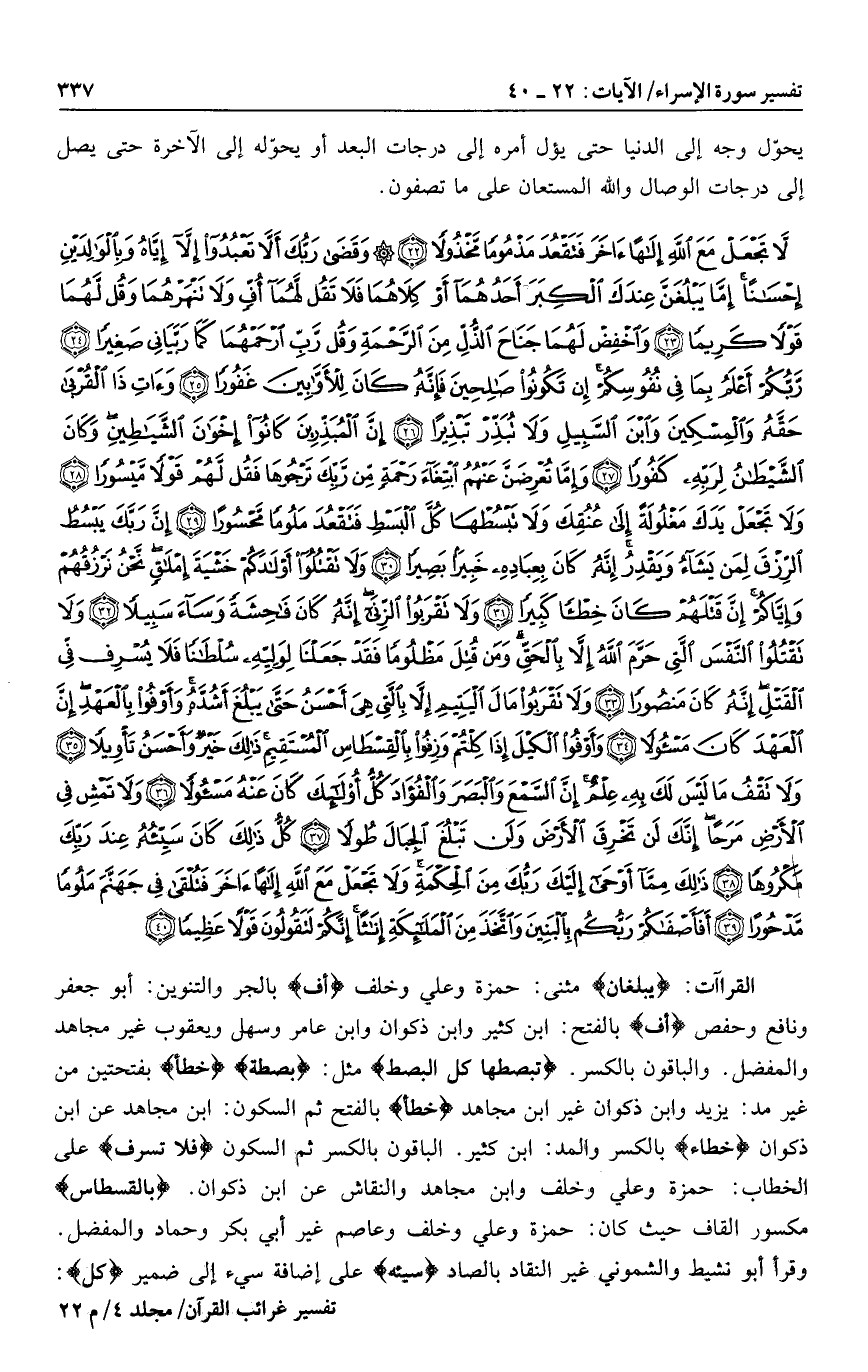 تفسير سورة الإسراء/ الآيات: ٢٢ ـ ٤٠ ٣٣٧
يحوّل وجه إلى الدنيا حتى يؤل أمره إلى درجات البعد أو يحوّله إلى الآخرة حتى يصل
إلى درجات الوصال والله المستعان على ما تصفون.
لَّا تَجْعَلْ مَعَ ٱللَّهِ إِلَٰهًا ءَاخَرَ فَتَقْعُدَ مَذْمُومًا مَّخْذُولًا ﴿٢٢﴾ ۞ وَقَضَىٰ رَبُّكَ أَلَّا تَعْبُدُوٓا۟ إِلَّآ إِيَّاهُ وَبِٱلْوَٰلِدَيْنِ
إِحْسَٰنًا ۚ إِمَّا يَبْلُغَنَّ عِندَكَ ٱلْكِبَرَ أَحَدُهُمَآ أَوْ كِلَاهُمَا فَلَا تَقُل لَّهُمَآ أُفٍّ وَلَا تَنْهَرْهُمَا وَقُل لَّهُمَا
قَوْلًا كَرِيمًا ﴿٢٣﴾ وَٱخْفِضْ لَهُمَا جَنَاحَ ٱلذُّلِّ مِنَ ٱلرَّحْمَةِ وَقُل رَّبِّ ٱرْحَمْهُمَا كَمَا رَبَّيَانِى صَغِيرًا ﴿٢٤﴾
رَّبُّكُمْ أَعْلَمُ بِمَا فِى نُفُوسِكُمْ ۚ إِن تَكُونُوا۟ صَٰلِحِينَ فَإِنَّهُۥ كَانَ لِلْأَوَّٰبِينَ غَفُورًا ﴿٢٥﴾ وَءَاتِ ذَا ٱلْقُرْبَىٰ
حَقَّهُۥ وَٱلْمِسْكِينَ وَٱبْنَ ٱلسَّبِيلِ وَلَا تُبَذِّرْ تَبْذِيرًا ﴿٢٦﴾ إِنَّ ٱلْمُبَذِّرِينَ كَانُوٓا۟ إِخْوَٰنَ ٱلشَّيَٰطِينِ ۖ وَكَانَ
ٱلشَّيْطَٰنُ لِرَبِّهِۦ كَفُورًا ﴿٢٧﴾ وَإِمَّا تُعْرِضَنَّ عَنْهُمُ ٱبْتِغَآءَ رَحْمَةٍ مِّن رَّبِّكَ تَرْجُوهَا فَقُل لَّهُمْ قَوْلًا مَّيْسُورًا ﴿٢٨﴾
وَلَا تَجْعَلْ يَدَكَ مَغْلُولَةً إِلَىٰ عُنُقِكَ وَلَا تَبْسُطْهَا كُلَّ ٱلْبَسْطِ فَتَقْعُدَ مَلُومًا مَّحْسُورًا ﴿٢٩﴾ إِنَّ رَبَّكَ يَبْسُطُ
ٱلرِّزْقَ لِمَن يَشَآءُ وَيَقْدِرُ ۚ إِنَّهُۥ كَانَ بِعِبَادِهِۦ خَبِيرًۢا بَصِيرًا ﴿٣٠﴾ وَلَا تَقْتُلُوٓا۟ أَوْلَٰدَكُمْ خَشْيَةَ إِمْلَٰقٍ ۖ نَّحْنُ نَرْزُقُهُمْ
وَإِيَّاكُمْ ۚ إِنَّ قَتْلَهُمْ كَانَ خِطْـًٔا كَبِيرًا ﴿٣١﴾ وَلَا تَقْرَبُوا۟ ٱلزِّنَىٰٓ ۖ إِنَّهُۥ كَانَ فَٰحِشَةً وَسَآءَ سَبِيلًا ﴿٣٢﴾ وَلَا
تَقْتُلُوا۟ ٱلنَّفْسَ ٱلَّتِى حَرَّمَ ٱللَّهُ إِلَّا بِٱلْحَقِّ ۗ وَمَن قُتِلَ مَظْلُومًا فَقَدْ جَعَلْنَا لِوَلِيِّهِۦ سُلْطَٰنًا فَلَا يُسْرِف فِّى
ٱلْقَتْلِ ۖ إِنَّهُۥ كَانَ مَنصُورًا ﴿٣٣﴾ وَلَا تَقْرَبُوا۟ مَالَ ٱلْيَتِيمِ إِلَّا بِٱلَّتِى هِىَ أَحْسَنُ حَتَّىٰ يَبْلُغَ أَشُدَّهُۥ ۚ وَأَوْفُوا۟ بِٱلْعَهْدِ ۖ إِنَّ
ٱلْعَهْدَ كَانَ مَسْـُٔولًا ﴿٣٤﴾ وَأَوْفُوا۟ ٱلْكَيْلَ إِذَا كِلْتُمْ وَزِنُوا۟ بِٱلْقِسْطَاسِ ٱلْمُسْتَقِيمِ ۚ ذَٰلِكَ خَيْرٌ وَأَحْسَنُ تَأْوِيلًا ﴿٣٥﴾
وَلَا تَقْفُ مَا لَيْسَ لَكَ بِهِۦ عِلْمٌ ۚ إِنَّ ٱلسَّمْعَ وَٱلْبَصَرَ وَٱلْفُؤَادَ كُلُّ أُو۟لَٰٓئِكَ كَانَ عَنْهُ مَسْـُٔولًا ﴿٣٦﴾ وَلَا تَمْشِ فِى
ٱلْأَرْضِ مَرَحًا ۖ إِنَّكَ لَن تَخْرِقَ ٱلْأَرْضَ وَلَن تَبْلُغَ ٱلْجِبَالَ طُولًا ﴿٣٧﴾ كُلُّ ذَٰلِكَ كَانَ سَيِّئُهُۥ عِندَ رَبِّكَ
مَكْرُوهًا ﴿٣٨﴾ ذَٰلِكَ مِمَّآ أَوْحَىٰٓ إِلَيْكَ رَبُّكَ مِنَ ٱلْحِكْمَةِ ۗ وَلَا تَجْعَلْ مَعَ ٱللَّهِ إِلَٰهًا ءَاخَرَ فَتُلْقَىٰ فِى جَهَنَّمَ مَلُومًا
مَّدْحُورًا ﴿٣٩﴾ أَفَأَصْفَىٰكُمْ رَبُّكُم بِٱلْبَنِينَ وَٱتَّخَذَ مِنَ ٱلْمَلَٰٓئِكَةِ إِنَٰثًا ۚ إِنَّكُمْ لَتَقُولُونَ قَوْلًا عَظِيمًا ﴿٤٠﴾
القراآت: ﴿يبلغان﴾ مثنى: حمزة وعلي وخلف ﴿أف﴾ بالجر والتنوين: أبو جعفر
ونافع وحفص ﴿أف﴾ بالفتح: ابن كثير وابن ذكوان وابن عامر وسهل ويعقوب غير مجاهد
والمفضل. والباقون بالكسر. ﴿تبصطها كل البصط﴾ مثل: ﴿بصطة﴾ ﴿خطأ﴾ بفتحتين من
غير مد: يزيد وابن ذكوان غير ابن مجاهد ﴿خطأ﴾ بالفتح ثم السكون: ابن مجاهد عن ابن
ذكوان ﴿خطاء﴾ بالكسر والمد: ابن كثير. الباقون بالكسر ثم السكون ﴿فلا تسرف﴾ على
الخطاب: حمزة وعلي وخلف وابن مجاهد والنقاش عن ابن ذكوان. ﴿بالقسطاس﴾
مكسور القاف حيث كان: حمزة وعلي وخلف وعاصم غير أبي بكر وحماد والمفضل.
وقرأ أبو نشيط والشموني غير النقاد بالصاد ﴿سيئه﴾ على إضافة سيء إلى ضمير ﴿كل﴾:
تفسير غرائب القرآن/ مجلد ٤/ م ٢٢